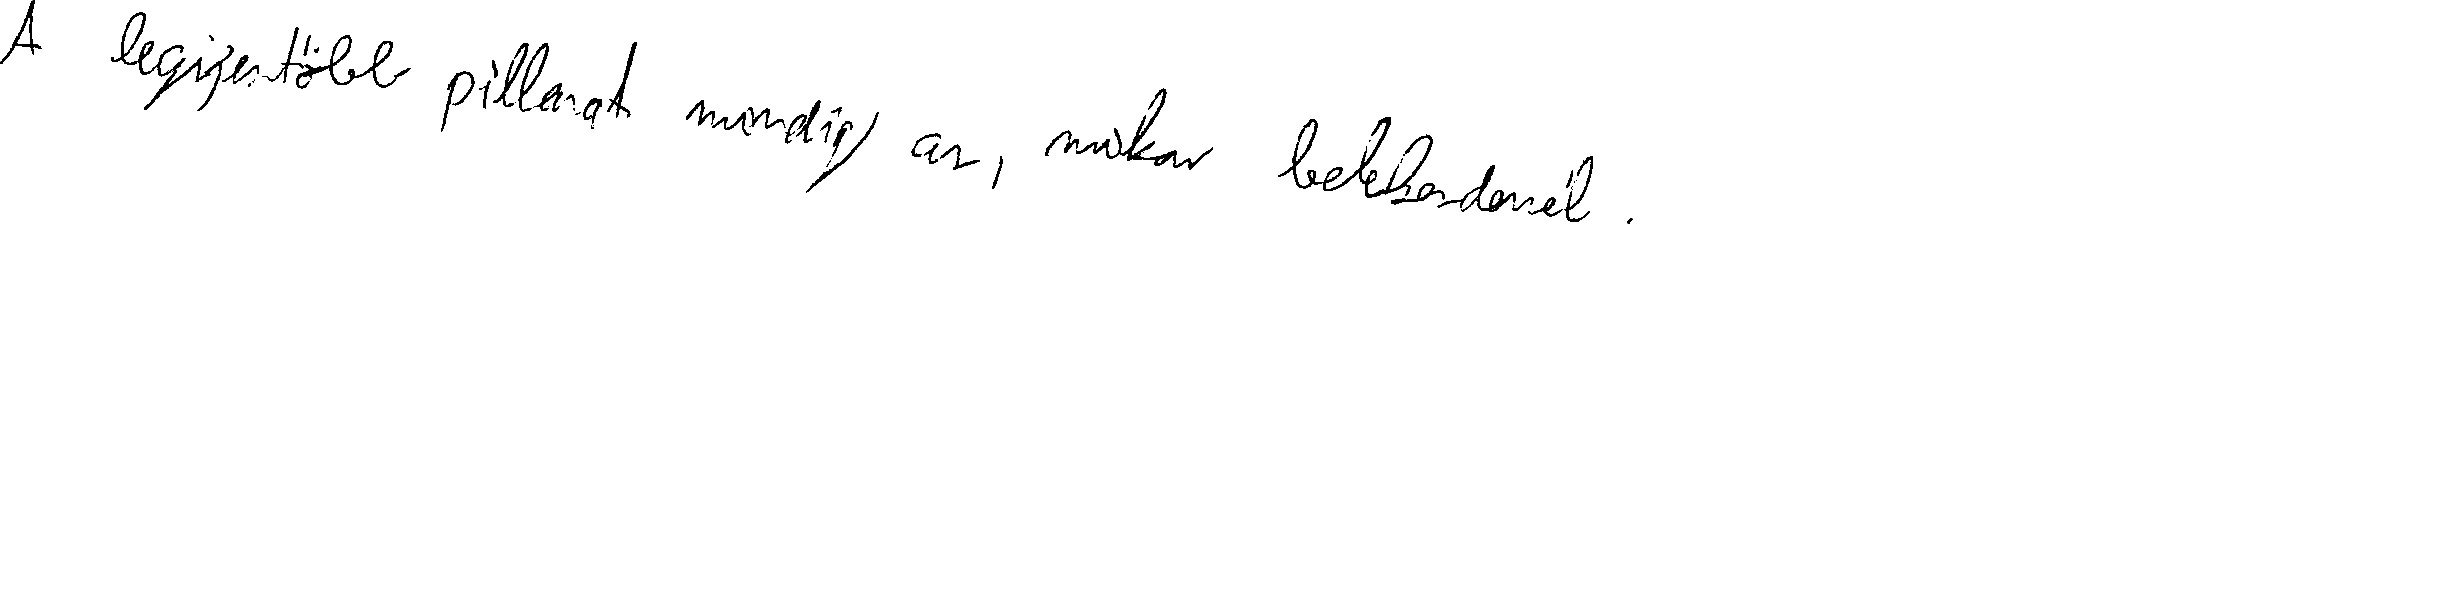 A legijesztőbb pillanat mindig az, mikor belekezdenél.